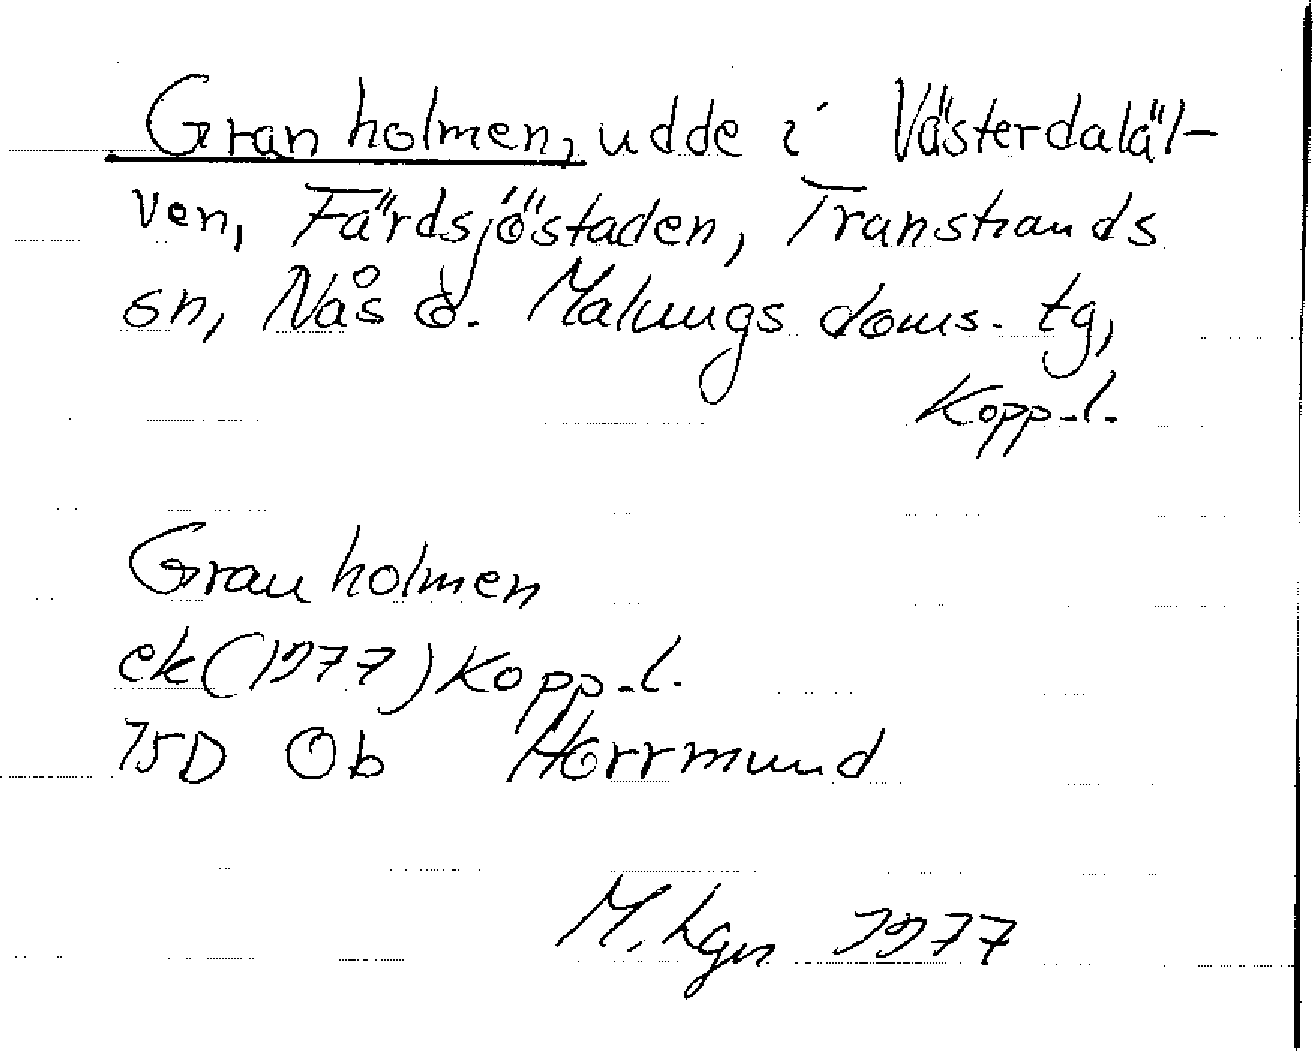 Granholmen, udde i Västerdaläl-
ven, Färdsjöstaden, Transtrands
sn, Nås o. Malungs doms. tg,
Kopp.l.
Granholmen
ek(1977)Kopp.l.
75D Ob Horrmund
M. Lgn 1977